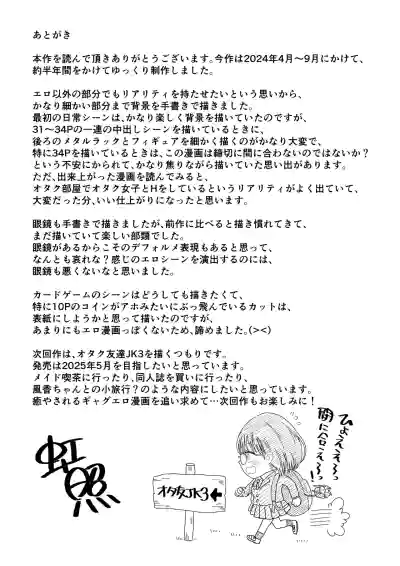 あとがき
本作を読んで頂きありがとうございます。今作は2024年4月〜9月にかけて、
約半年間をかけてゆっくり制作しました。
エロ以外の部分でもリアリティを持たせたいという思いから、
かなり細かい部分まで背景を手書きで描きました。
最初の日常シーンは、かなり楽しく背景を描いていたのですが、
31〜34Pの一連の中出しシーンを描いているときに、
後ろのメタルラックとフィギュアを細かく描くのがかなり大変で、
特に34Pを描いているときは、この漫画は締切に間に合わないのではないか?
という不安にかられて、かなり焦りながら描いていた思い出があります。
ただ、出来上がった漫画を読んでみると、
オタク部屋でオタク女子とHをしているというリアリティがよく出ていて、
大変だった分、いい仕上がりになったと思います。
眼鏡も手書きで描きましたが、前作に比べると描き慣れてきて、
まだ描いていて楽しい部類でした。
眼鏡があるからこそのデフォルメ表現もあると思って、
なんとも哀れな?感じのエロシーンを演出するのには、
眼鏡も悪くないなと思いました。
カードゲームのシーンはどうしても描きたくて、
特に10Pのコインがアホみたいにぶっ飛んでいるカットは、
表紙にしようかと思って描いたのですが、
あまりにもエロ漫画っぽくないため、諦めました。(><)
次回作は、オタク友達JK3を描くつもりです。
発売は2025年5月を目指したいと思っています。
メイド喫茶に行ったり、同人誌を買いに行ったり、
風香ちゃんとの小旅行?のような内容にしたいと思っています。
癒やされるギャグエロ漫画を追い求めて…次回作もお楽しみに!
ひょええっ
間に合えっ!
虹照
オタ友JK3